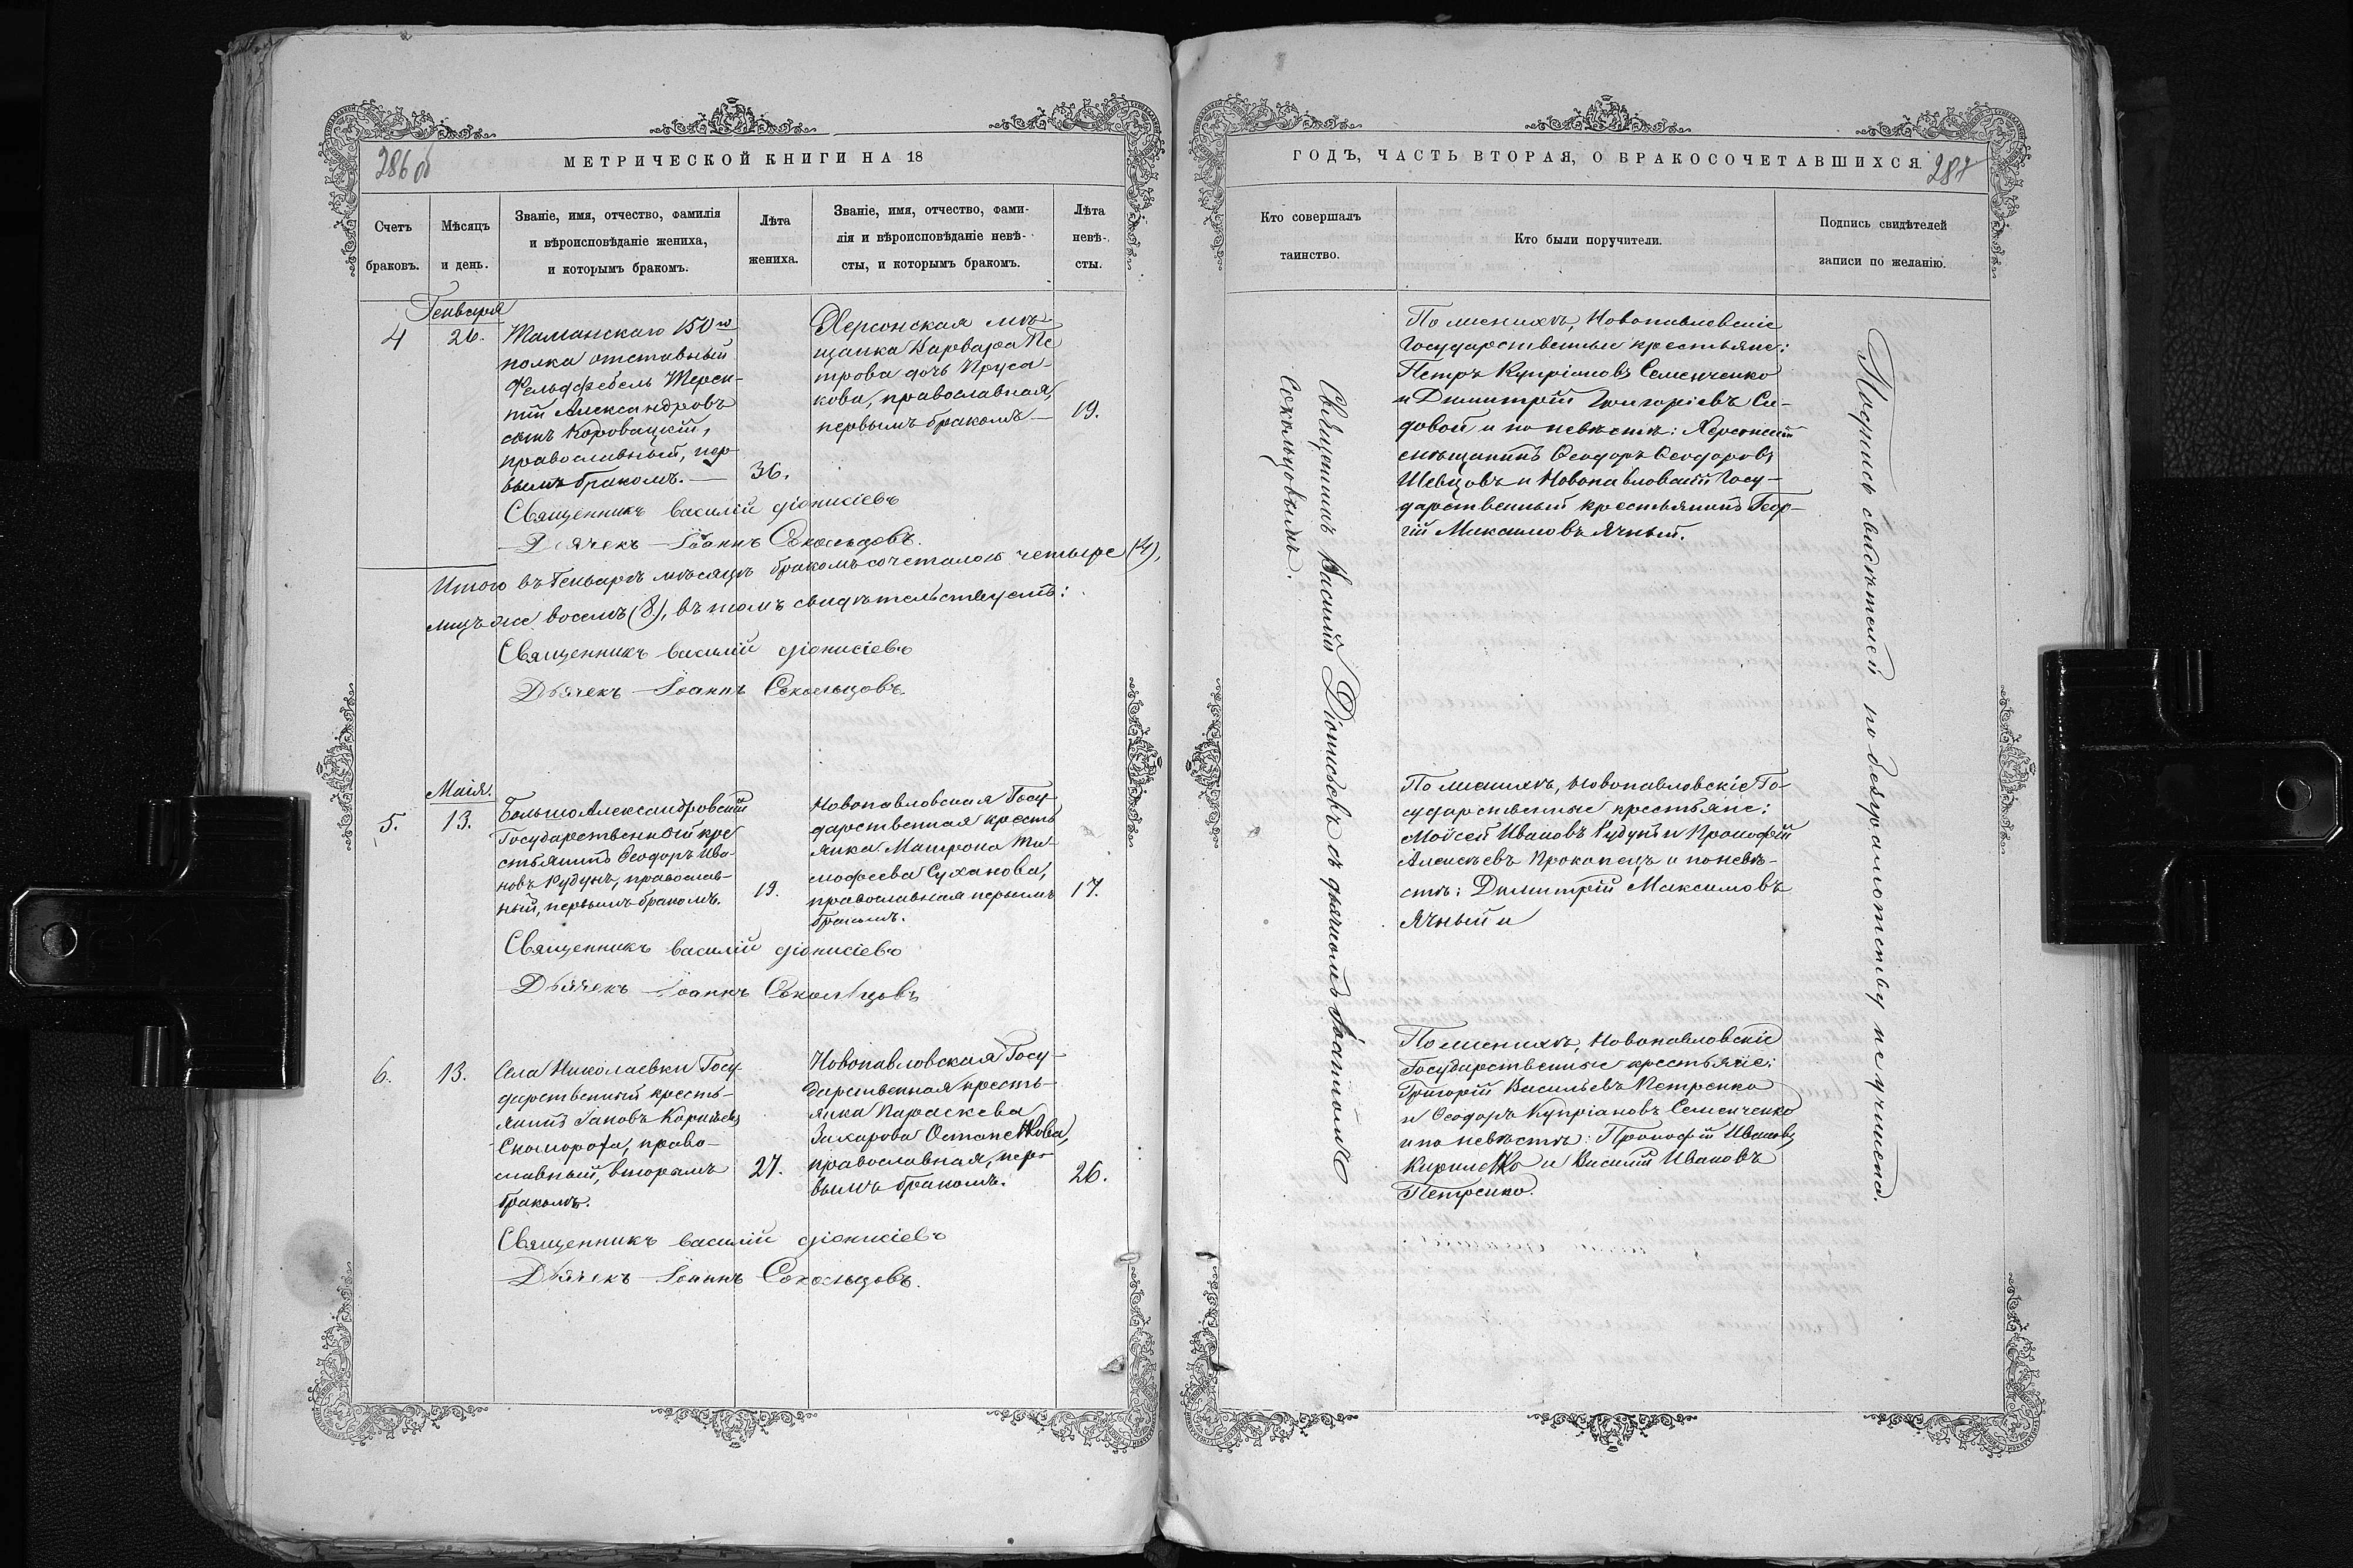 286 об
МЕТРИЧЕСКОЙ КНИГИ НА 18
Счетъ браковъ.
Мѣсяцъ и день.
Званіе, имя, отчество, фамилія
и вѣроисповѣданіе жениха,
и которымъ бракомъ.
Лѣта
жениха.
Званіе, имя, отчество, фами-
лія и вѣроисповѣданіе невѣ-
сты, и которымъ бракомъ.
Лѣта
невѣ-
сты.
Генваря
4
26.
Таманскаго 150го
полка отставный
Фельдфебель Терен-
тій Александровъ
сынъ Коровацкій,
православный, пер-
вымъ бракомъ. —
36.
Херсонская мѣ-
щанка Варвара Пе
трова дочь Пруса-
кова, православная,
первымъ бракомъ —
19.
Священникъ Василій Діонисіевъ
Дьячекъ Іоаннъ Сокольцовъ.
Итого въ Генварѣ мѣсяцѣ бракомъ сочеталось четыре (4),
лицъ же восемь (8), въ томъ свидѣтельствуетъ:
Священникъ Василій Діонисіевъ
Дьячекъ Іоаннъ Сокольцовъ.
Маія.
5.
13.
Большо Александровскій
Государственный кре
стьянинъ Ѳеодоръ Ива-
новъ Кудунъ, православ-
ный, первымъ бракомъ.
19.
Новопавловская Госу-
дарственная кресть
янка Матрона Ти-
мофеева Суханова,
православная первымъ
бракомъ.
17.
Священникъ Василій Діонисіевъ
Дьячекъ Іоаннъ Сокольцовъ
6.
13.
Села Николаевки Госу
дарственный кресть-
янинъ Іаковъ Корнѣевъ
Скомороха, право-
славный, вторымъ
бракомъ.
27.
Новопавловская Госу-
дарственная кресть-
янка Параскева
Захарова Остапенкова,
православная, пер-
вымъ бракомъ.
26.
Священникъ Василій Діонисіевъ
Дьячекъ Іоаннъ Сокольцовъ.
ГОДЪ, ЧАСТЬ ВТОРАЯ, О БРАКОСОЧЕТАВШИХСЯ
287
Кто совершалъ
таинство.
Кто были поручители.
Подпись свидѣтелей
записи по желанію.
Священникъ Василій Діонисіевъ съ дьячкомъ Іоанномъ
Сокольцовымъ.
По женихѣ, Новопавловскіе
Государственные крестьяне:
Петръ Купріановъ Семенченко
и Димитрій Григоріевъ Си-
довой и по невѣстѣ: Херсонскій
мѣщанинъ Ѳеодоръ Ѳеодоровъ
Шевцовъ и Новопавловскій Госу-
дарственный крестьянинъ Геор-
гій Максимовъ Ячный.
По женихѣ, Новопавловскіе Го-
сударственные крестьяне:
Моисей Ивановъ Кудунъ и Прокофій
Алексѣевъ Прокопецъ и по невѣ-
стѣ: Димитрій Максимовъ
Ячный и
По женихѣ, Новопавловскіе
Государственные крестьяне:
Григорій Васильевъ Петренко
и Ѳеодоръ Купріановъ Семенченко
и по невѣстѣ: Прокофій Ивановъ
Кириленко и Василій Ивановъ
Петренко.
Подпись свидѣтелей по безграмотству не учинена.